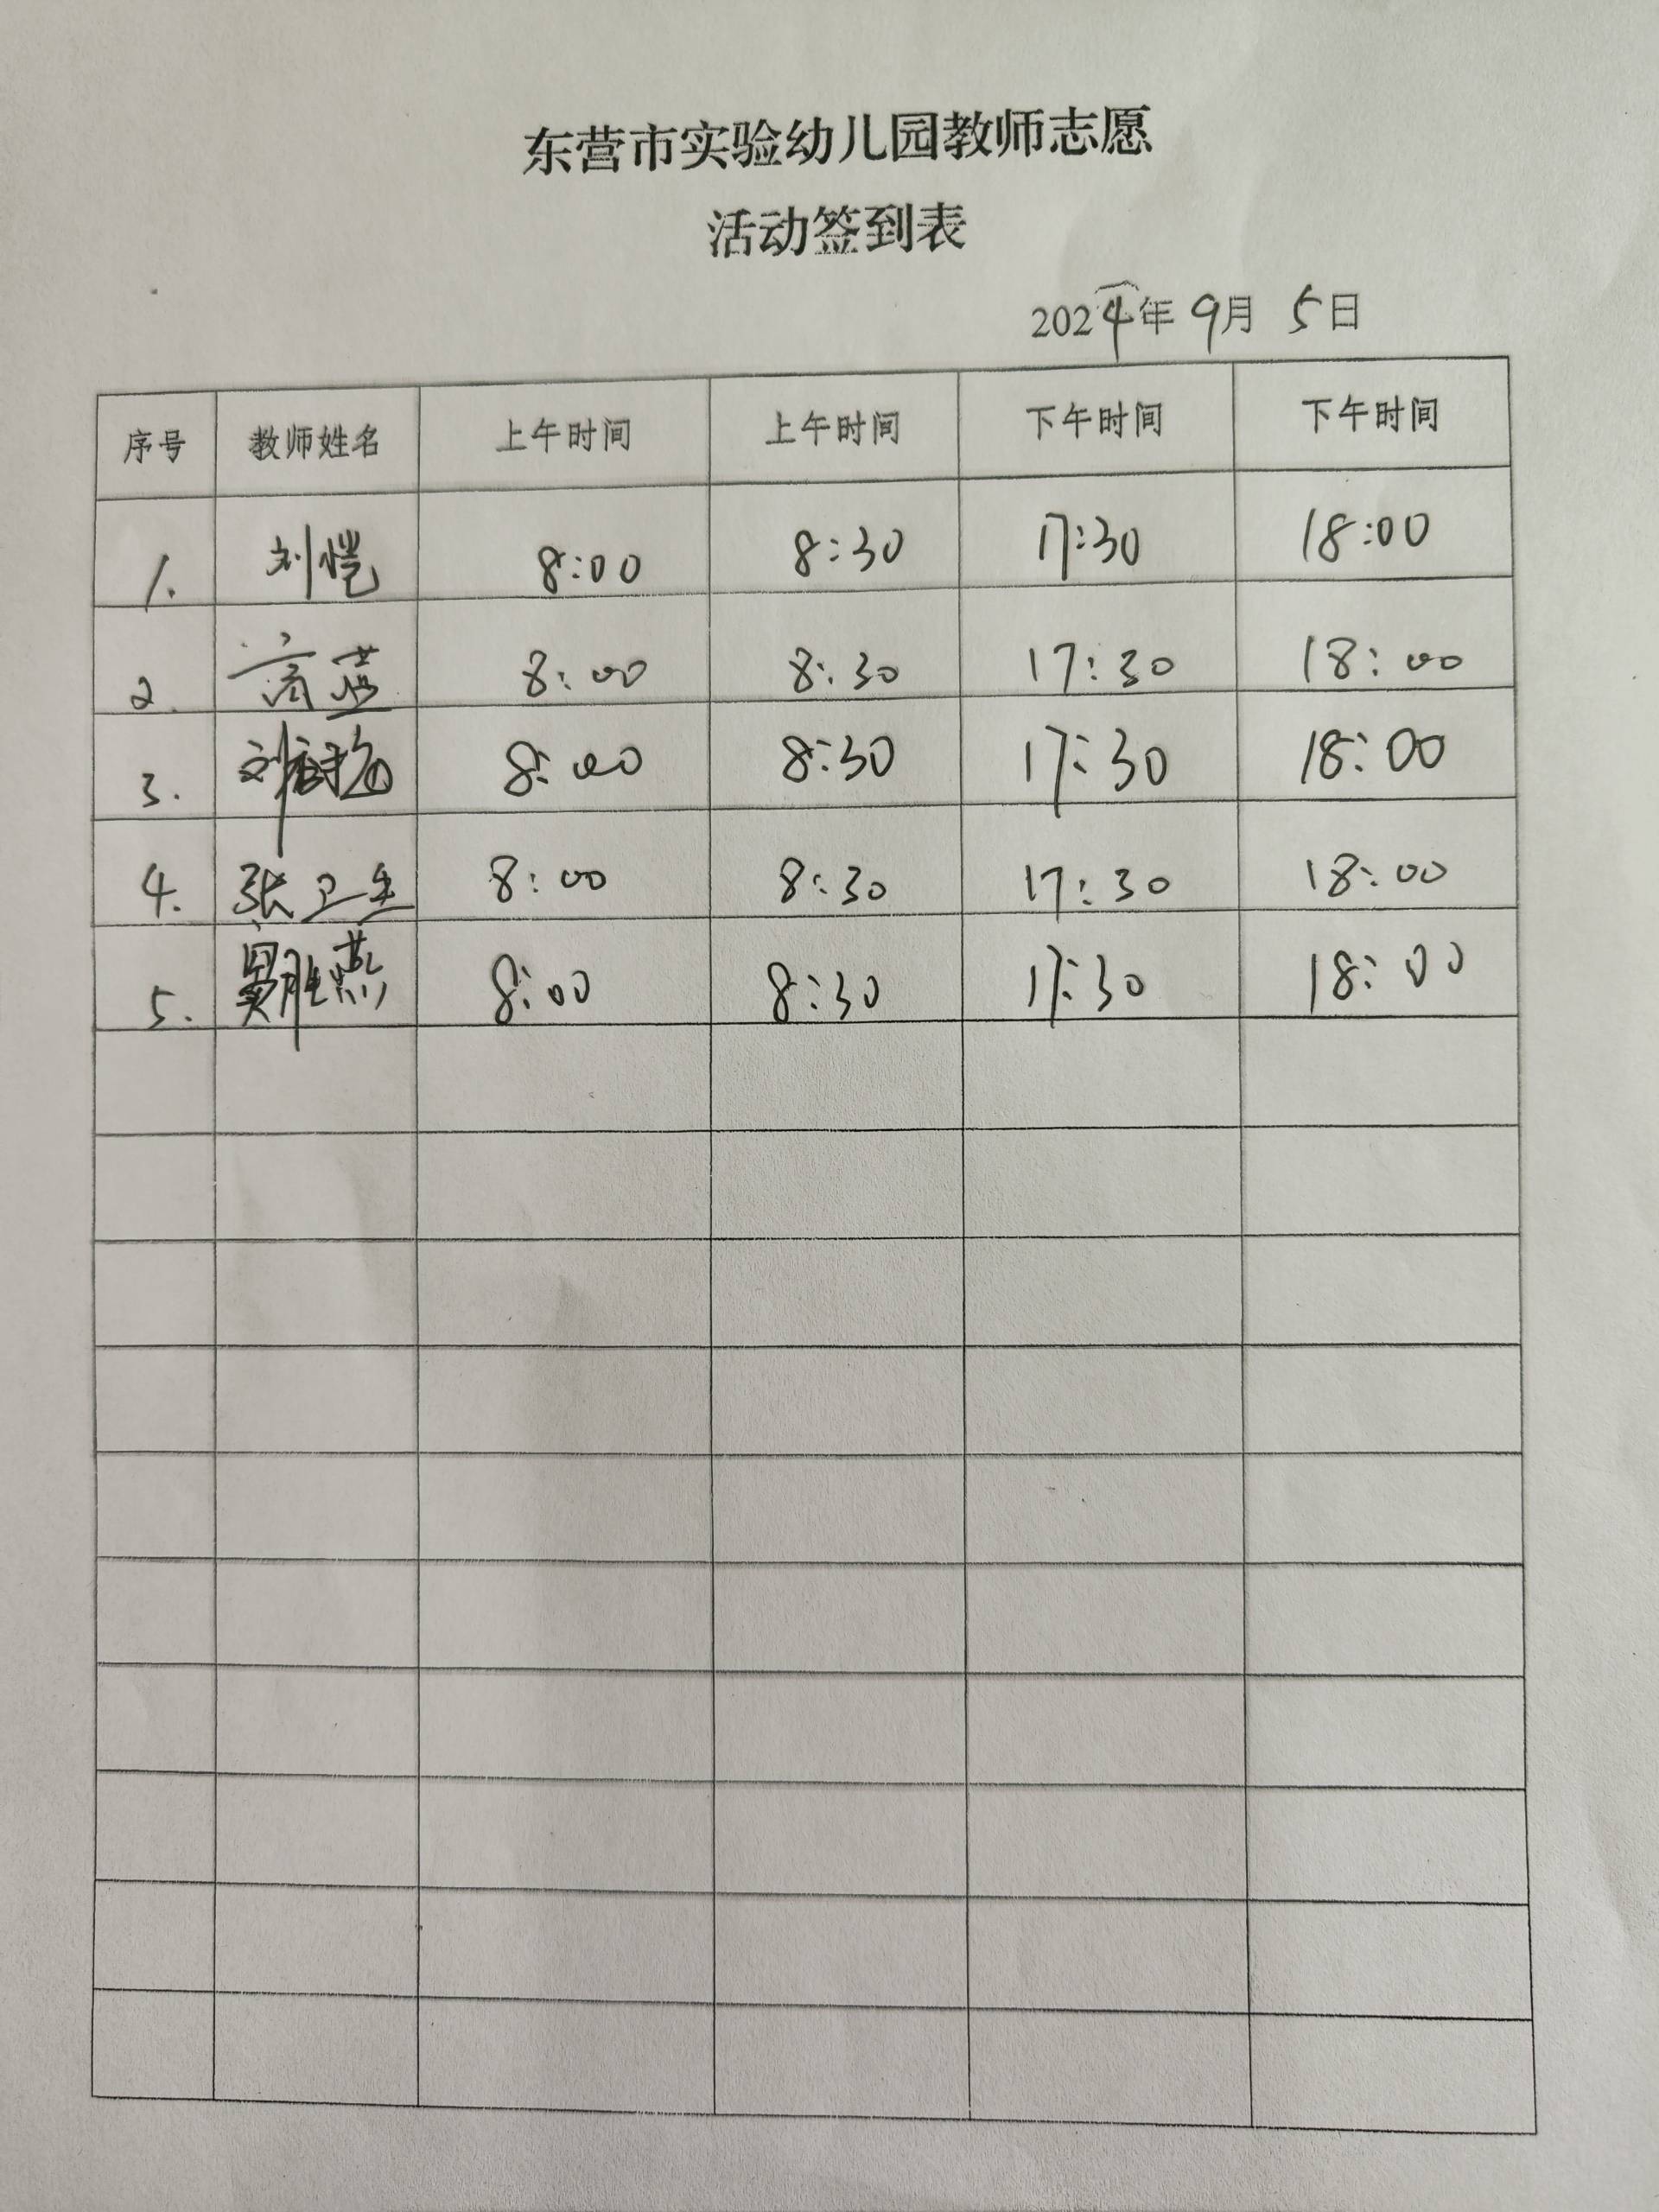 东营市实验幼儿园教师志愿
活动签到表
2024年 9月 5日
序号 教师姓名 上午时间 上午时间 下午时间 下午时间
1. 刘恺 8:00 8:30 17:30 18:00
2. 高蓝 8:00 8:30 17:30 18:00
3. 8:00 8:30 17:30 18:00
4. 张卫全 8:00 8:30 17:30 18:00
5. 窦胜燕 8:00 8:30 17:30 18:00